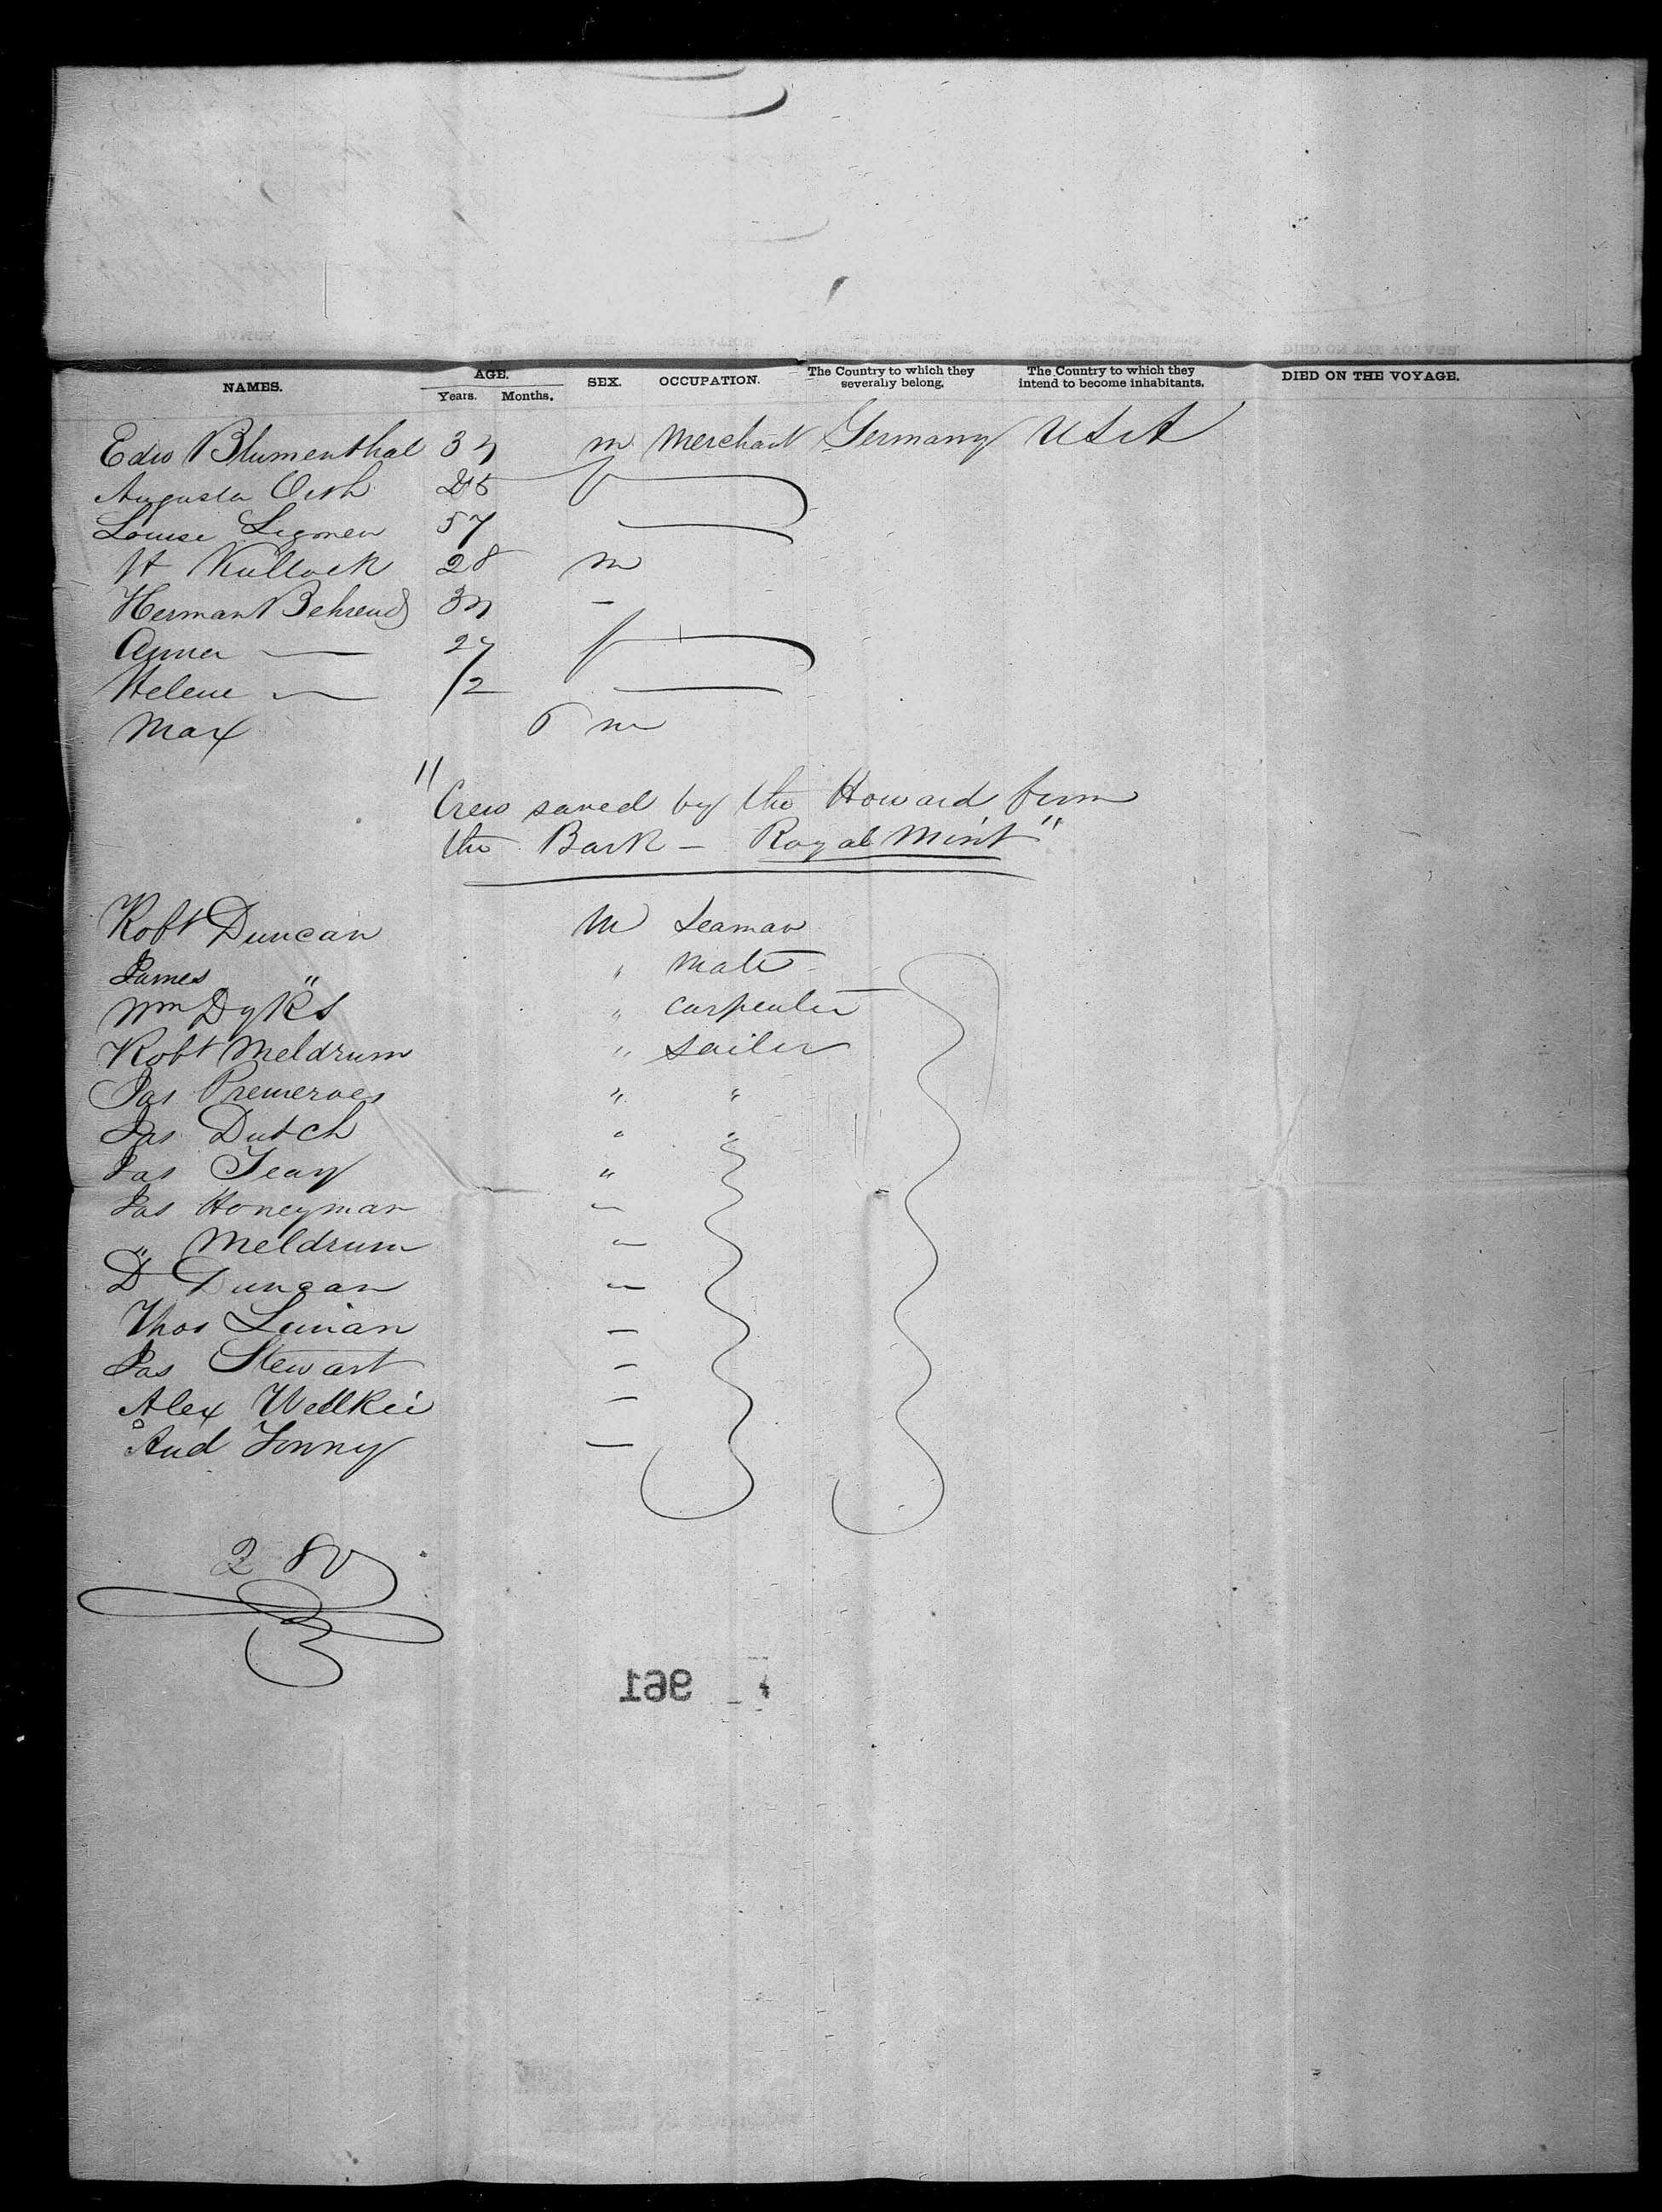 NAMES. AGE. SEX. OCCUPATION. The Country to which they severally belong. The Country to which they intend to become inhabitants. DIED ON THE VOYAGE.
Years. Months.
Edw Blumenthal 34 m Merchant Germany USA
Augusta 25 f
Louise 57
H Kullock 28 m
Herman Behrend 34 —
Anna — 27 f
Helene — /2
Max 6 m
"Crew saved by the Howard from
the Bark — Royal Mint"
Robt Duncan M Seaman
James " " Mate
Wm Dyks " Carpenter
Robt Meldrum " Sailer
Jas " "
Jas Dutch " "
Jas "
Jas Honeyman —
" Meldrum —
D Duncan —
Thos —
Jas Stewart —
Alex —
And —
280
961